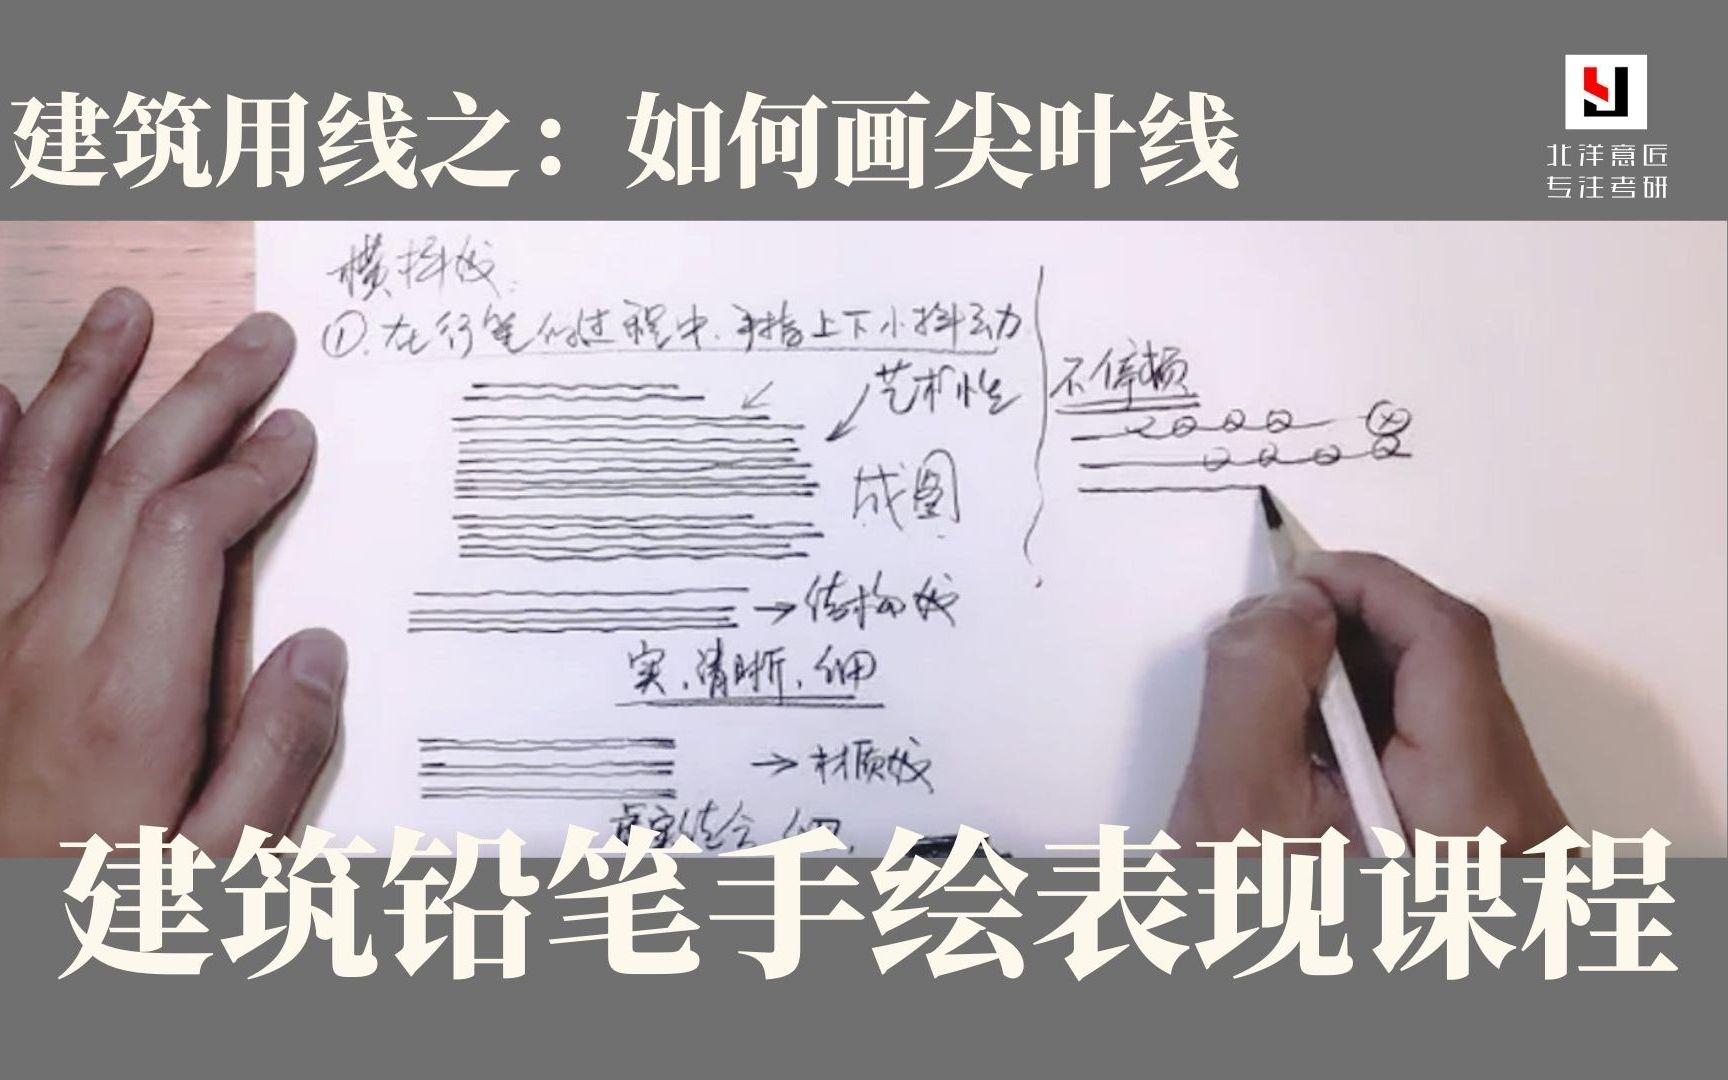 建筑用线之：如何画尖叶线
北洋意匠
专注考研
横抖线
①.在行笔的过程中.手指上下小抖动
艺术性
成图
不停顿
→结构线
实.清晰.细
→材质线
虚实结合.细.
建筑铅笔手绘表现课程